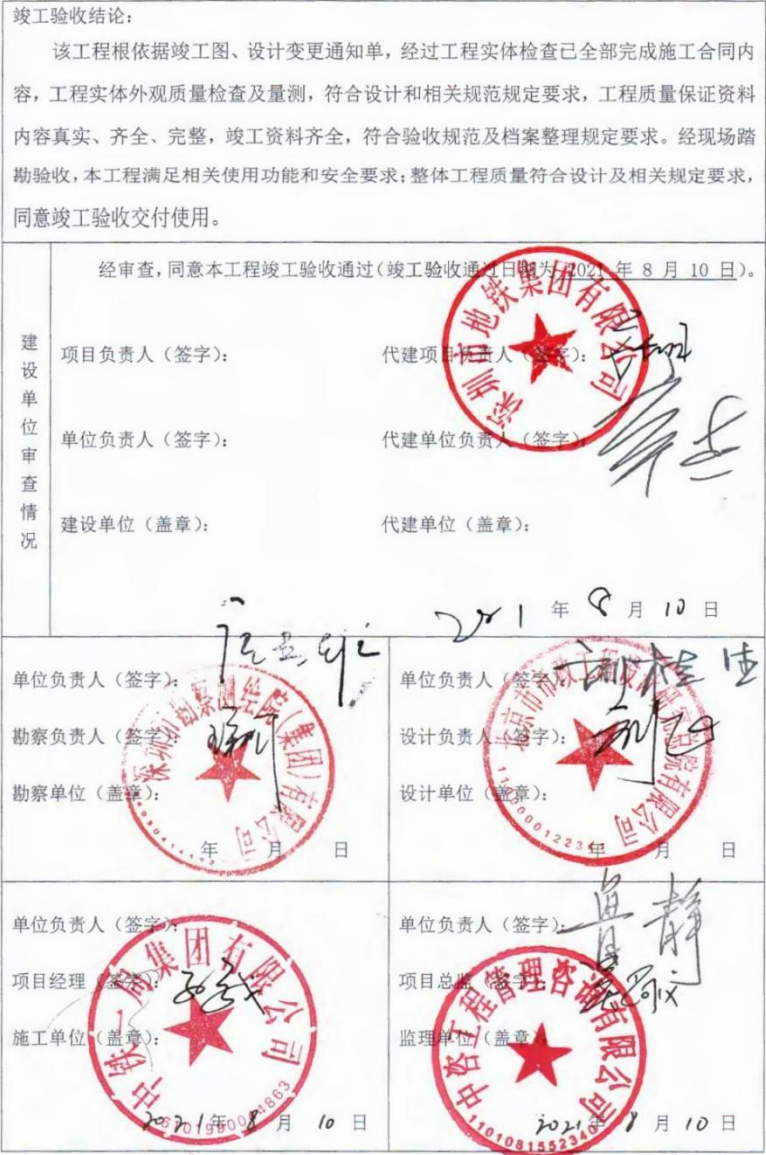 竣工验收结论:
该工程根依据竣工图、设计变更通知单，经过工程实体检查已全部完成施工合同内
容，工程实体外观质量检查及量测，符合设计和相关规范规定要求，工程质量保证资料
内容真实、齐全、完整，竣工资料齐全，符合验收规范及档案整理规定要求。经现场踏
勘验收，本工程满足相关使用功能和安全要求；整体工程质量符合设计及相关规定要求，
同意竣工验收交付使用。
建设单位审查情况
经审查，同意本工程竣工验收通过(竣工验收通过日期为 2021 年 8 月 10 日)。
项目负责人（签字）：
代建项目负责人（签字）：
单位负责人（签字）：
代建单位负责人（签字）：
建设单位（盖章）：
代建单位（盖章）：
深圳市地铁集团有限公司
2021 年 8 月 10 日
单位负责人（签字）：
勘察负责人（签字）：
勘察单位（盖章）：
深圳市勘察测绘院(集团)有限公司
年 月 日
单位负责人（签字）：
设计负责人（签字）：
设计单位（盖章）：
年 月 日
单位负责人（签字）：
项目经理（签字）：
施工单位（盖章）：
中铁一局集团有限公司
2021年 8 月 10 日
单位负责人（签字）：
鲁静
项目总监（签字）：
监理单位（盖章）：
中咨工程管理咨询有限公司
1101081552340
2021年 8 月 10 日